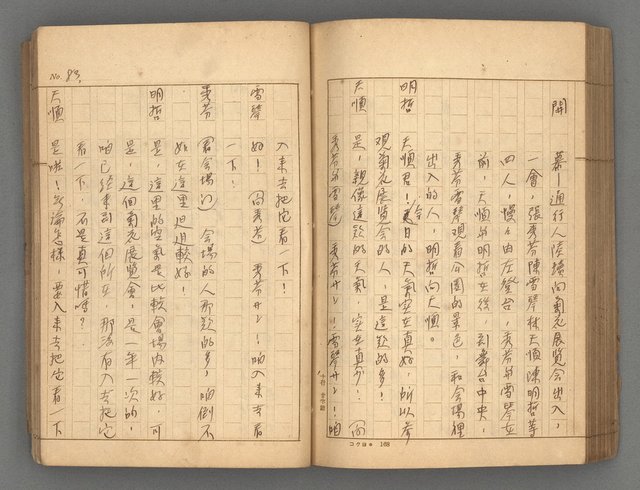 開　幕－通行人陸續向菊花展覽会出入，
一會，張秀芬陳雪琴林天順陳明哲等
四人，慢々由左登台，秀芬与雪琴在
前，天順与明哲在後，到舞台中央，
秀芬雪琴观看公園的景色，和会場裡
出入的人，明哲向天順。
明哲　天順君！今日的天氣实在真好，所以參
观菊花展覧会的人，是這款的多！
天順　是，親像這款的天氣，实在真少！（向
秀芬与雪琴）秀芬サン！雪琴サン！咱
コクヨ 168
No. 83.
入来去把它看一下！
雪琴　好！（向秀芬）秀芬サン！咱入来去看
一下！
秀芬　（看会場门）会場的人那款的多，咱倒不
如在這里迌迌較好！
明哲　是，這里的空氣是比較會場内較好，可
是，這個菊花展覽會，是一年一次的！
咱已經来到這個所在，那沒有入去把它
看一下，不是真可惜嗎？
天順　是啦！無論怎樣，要入来去把它看一下